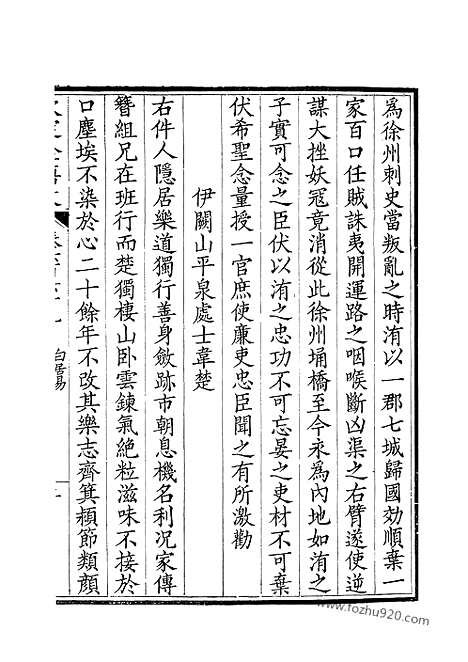 為徐州刺史當叛亂之時洧以一郡七城歸國効順棄一
家百口任賊誅夷開運路之咽喉斷凶渠之右臂遂使逆
謀大挫妖寇竟消從此徐州埇橋至今永為內地如洧之
子實可念之臣伏以洧之忠功不可忘晏之吏材不可棄
伏希聖念量授一官庶使廉吏忠臣聞之有所激勸
伊闕山平泉處士韋楚
右件人隱居樂道獨行善身斂跡市朝息機名利況家傳
簪組兄在班行而楚獨棲山臥雲鍊氣絶粒滋味不接於
口塵埃不染於心二十餘年不改其樂志齊箕穎節類顔
白居易
www.fozhu920.com